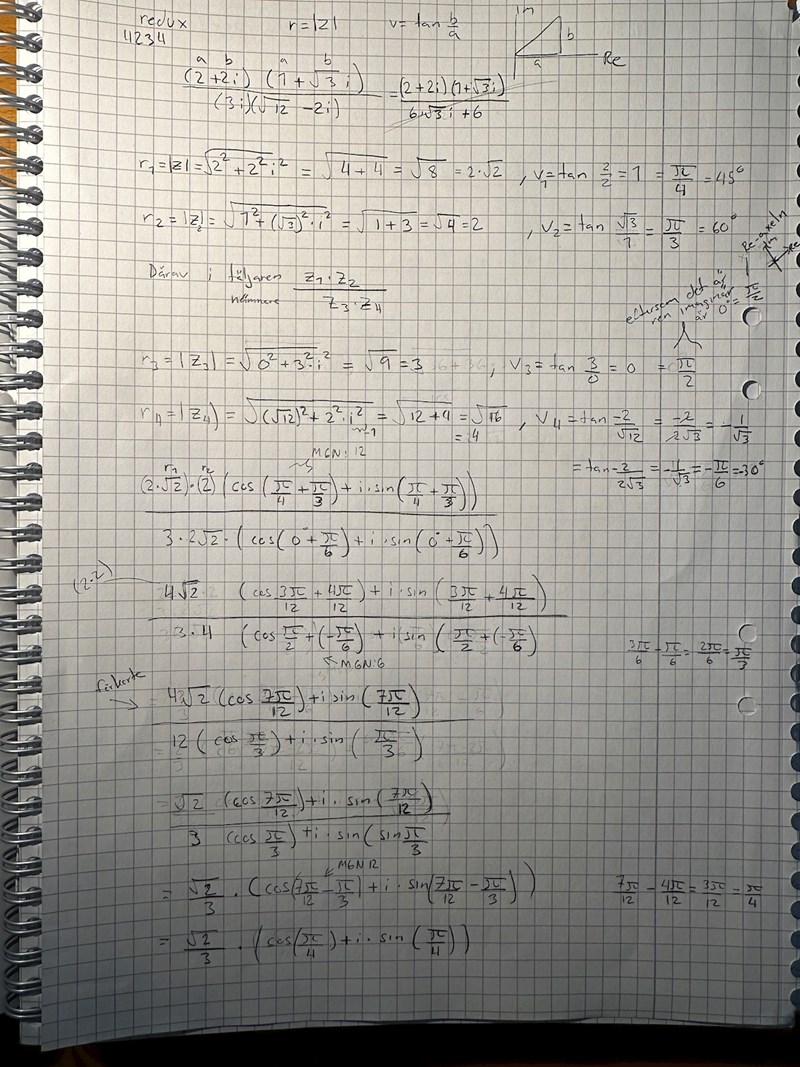 redux
4234
r=|z| v= tan b/a
Im
b
a
Re
a b a b
(2+2i) (1+√3 i) / (3i)(√12 -2i) = (2+2i)(1+√3i) / 6√3i+6
r1=|z|=√(2²+2²i²) = √(4+4) = √8 = 2·√2 , v1=tan 2/2 = 1 = π/4 = 45°
r2=|z2|=√(1²+(√3)²·i²) = √(1+3) = √4 = 2 , v2=tan √3/1 = π/3 = 60°
Därav i täljaren z1·z2 / z3·z4
nämnare
Re-axeln
Im
Re
eftersom det är
ren imaginär
är 0° = π/2
r3=|z3| = √(0²+3²·i²) = √9 = 3 , v3=tan 3/0 = 0 = π/2
r4=|z4| = √((√12)²+2²·i²) = √(12+4) = √16 , v4=tan -2/√12 = -2/2√3 = -1/√3
-1
= 4
= tan -2/2√3 = -1/√3 = -π/6 = -30°
MGN: 12
r1 r2
(2·√2)·(2) (cos (π/4 + π/3) + i·sin(π/4 + π/3)) / 3·2√2·(cos(0°+π/6) + i·sin(0°+π/6))
(2·2)
4√2 (cos 3π/12 + 4π/12) + i·sin (3π/12 + 4π/12) / 3·4 (cos π/2 + (-π/6) + i sin (π/2 + (-π/6)
MGN:6
3π/6 - π/6 = 2π/6 = π/3
förkorta
= 4√2 (cos 7π/12) + i sin (7π/12) / 12 (cos π/3) + i·sin (π/3)
= √2 (cos 7π/12) + i· sin (7π/12) / 3 (cos π/3) + i·sin (sin π/3
MGN 12
= √2/3 · (cos(7π/12 - π/3) + i·sin(7π/12 - π/3))
7π/12 - 4π/12 = 3π/12 = π/4
= √2/3 · (cos(π/4) + i· sin (π/4))